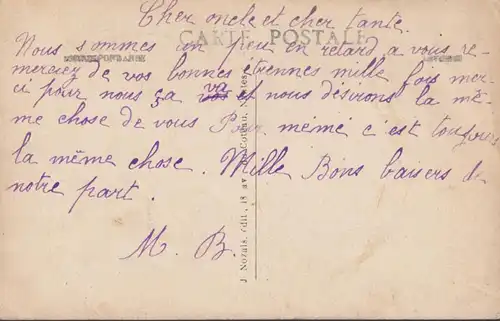 Cher oncle et cher tante.
CARTE POSTALE
CORRESPONDANCE
Nous sommes un peu en retard a vous re-
merciez de vos bonnes étrennes mille fois mer-
ci pour nous ça va et nous désirons la mê-
me chose de vous Pour mémé c'est toujours
la même chose. Mille Bons baisers de
notre part.
M. B.
J. Nozais, édit., 18